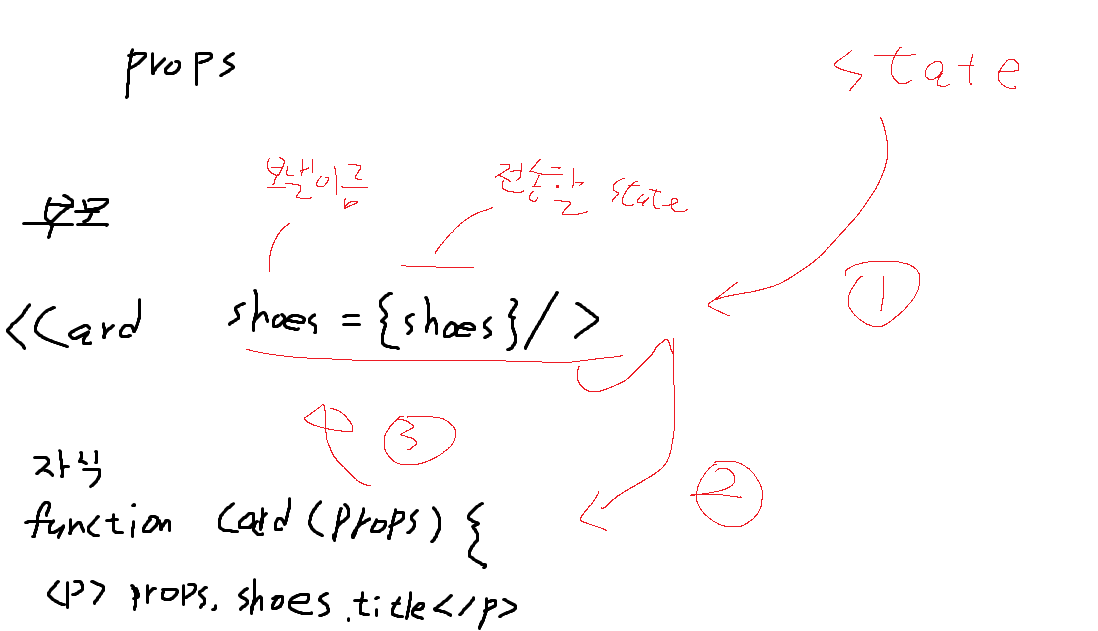 props
state
보낼이름
전송할 state
부모
①
<Card shoes = {shoes}/>
③
②
자식
function Card (props) {
<p> props. shoes .title</p>